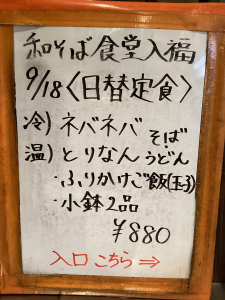 和そば食堂入福
9/18〈日替定食〉
冷) ネバネバ そば
温) とりなん うどん
・ふりかけご飯(玉子)
・小鉢2品
¥880
入口 こちら⇒